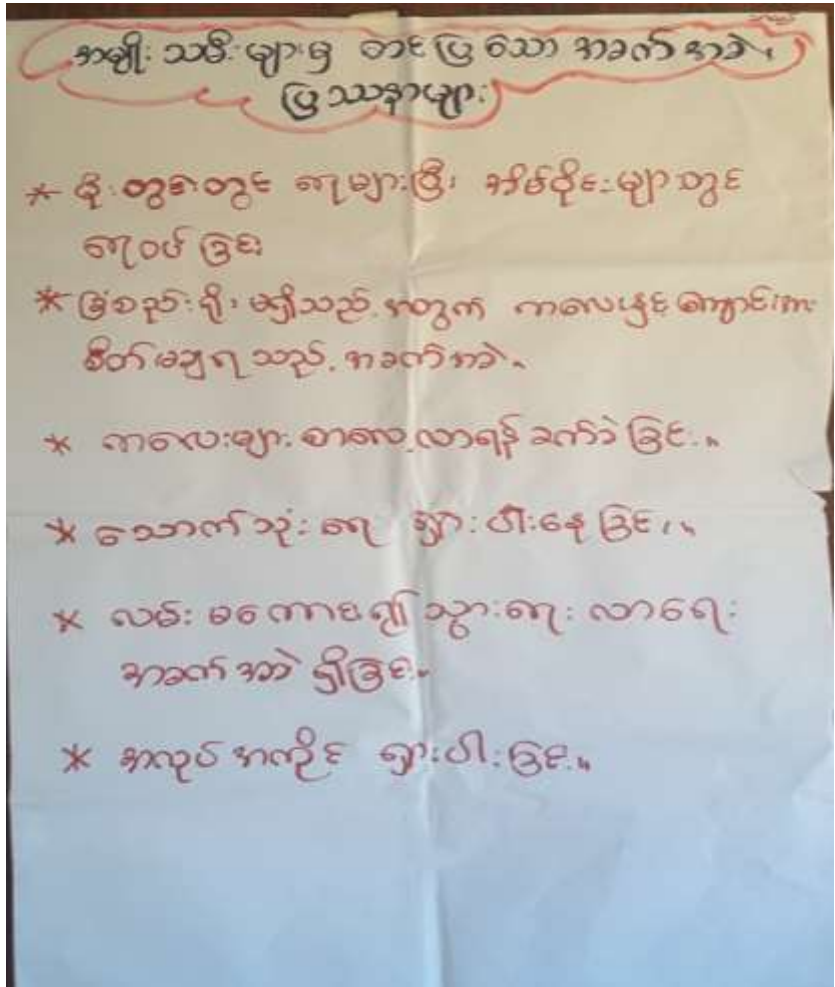 အမျိုးသမီးများမှ တင်ပြသော အခက်အခဲ၊
ပြဿနာများ
* မိုးတွင်းတွင် ရေများပြီး အိမ်ဝိုင်းများတွင်
ရေဝပ်ခြင်း
* ခြံစည်းရိုး မရှိသည့်အတွက် ကလေးနှင့်ကျောင်းအား
စိတ်မချရသည့် အခက်အခဲ။
* ကလေးများ စာလေ့လာရန် ခက်ခဲခြင်း။
* သောက်သုံးရေ ရှားပါးနေခြင်း။
* လမ်းမကောင်း၍ သွားရေးလာရေး
အခက်အခဲရှိခြင်း။
* အလုပ်အကိုင် ရှားပါးခြင်း။